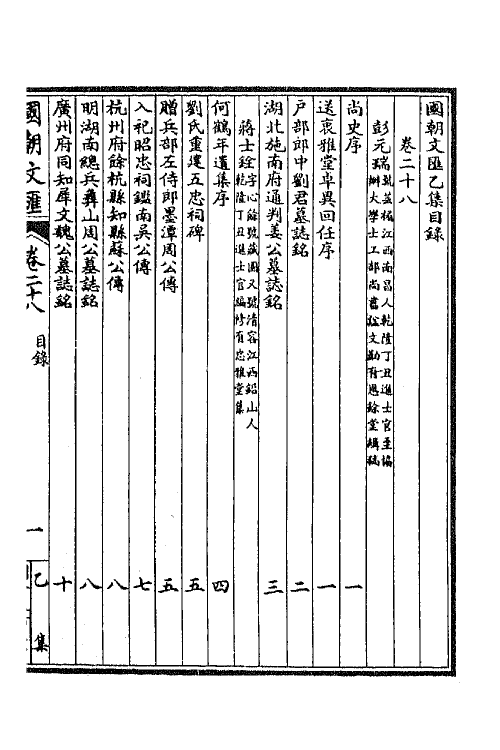 國朝文匯乙集目錄
卷二十八
彭元瑞 號芸楣江西南昌人乾隆丁丑進士官至協
辦大學士工部尚書諡文勤有恩餘堂輯稿
尚史序 一
送袁雅堂卓異回任序 一
戶部郎中劉君墓誌銘 二
湖北施南府通判姜公墓誌銘 三
蔣士銓 字心餘號藏園又號清容江西鉛山人
乾隆丁丑進士官編修有忠雅堂集
何鶴年遺集序 四
劉氏重建五忠祠碑 五
贈兵部左侍郎墨潭周公傳 五
入祀昭忠祠鑑南吳公傳 七
杭州府餘杭縣知縣蘇公傳 八
明湖南總兵彝山周公墓誌銘 八
廣州府同知犀文魏公墓誌銘 十
國朝文匯 卷二十八 目錄 一 乙集